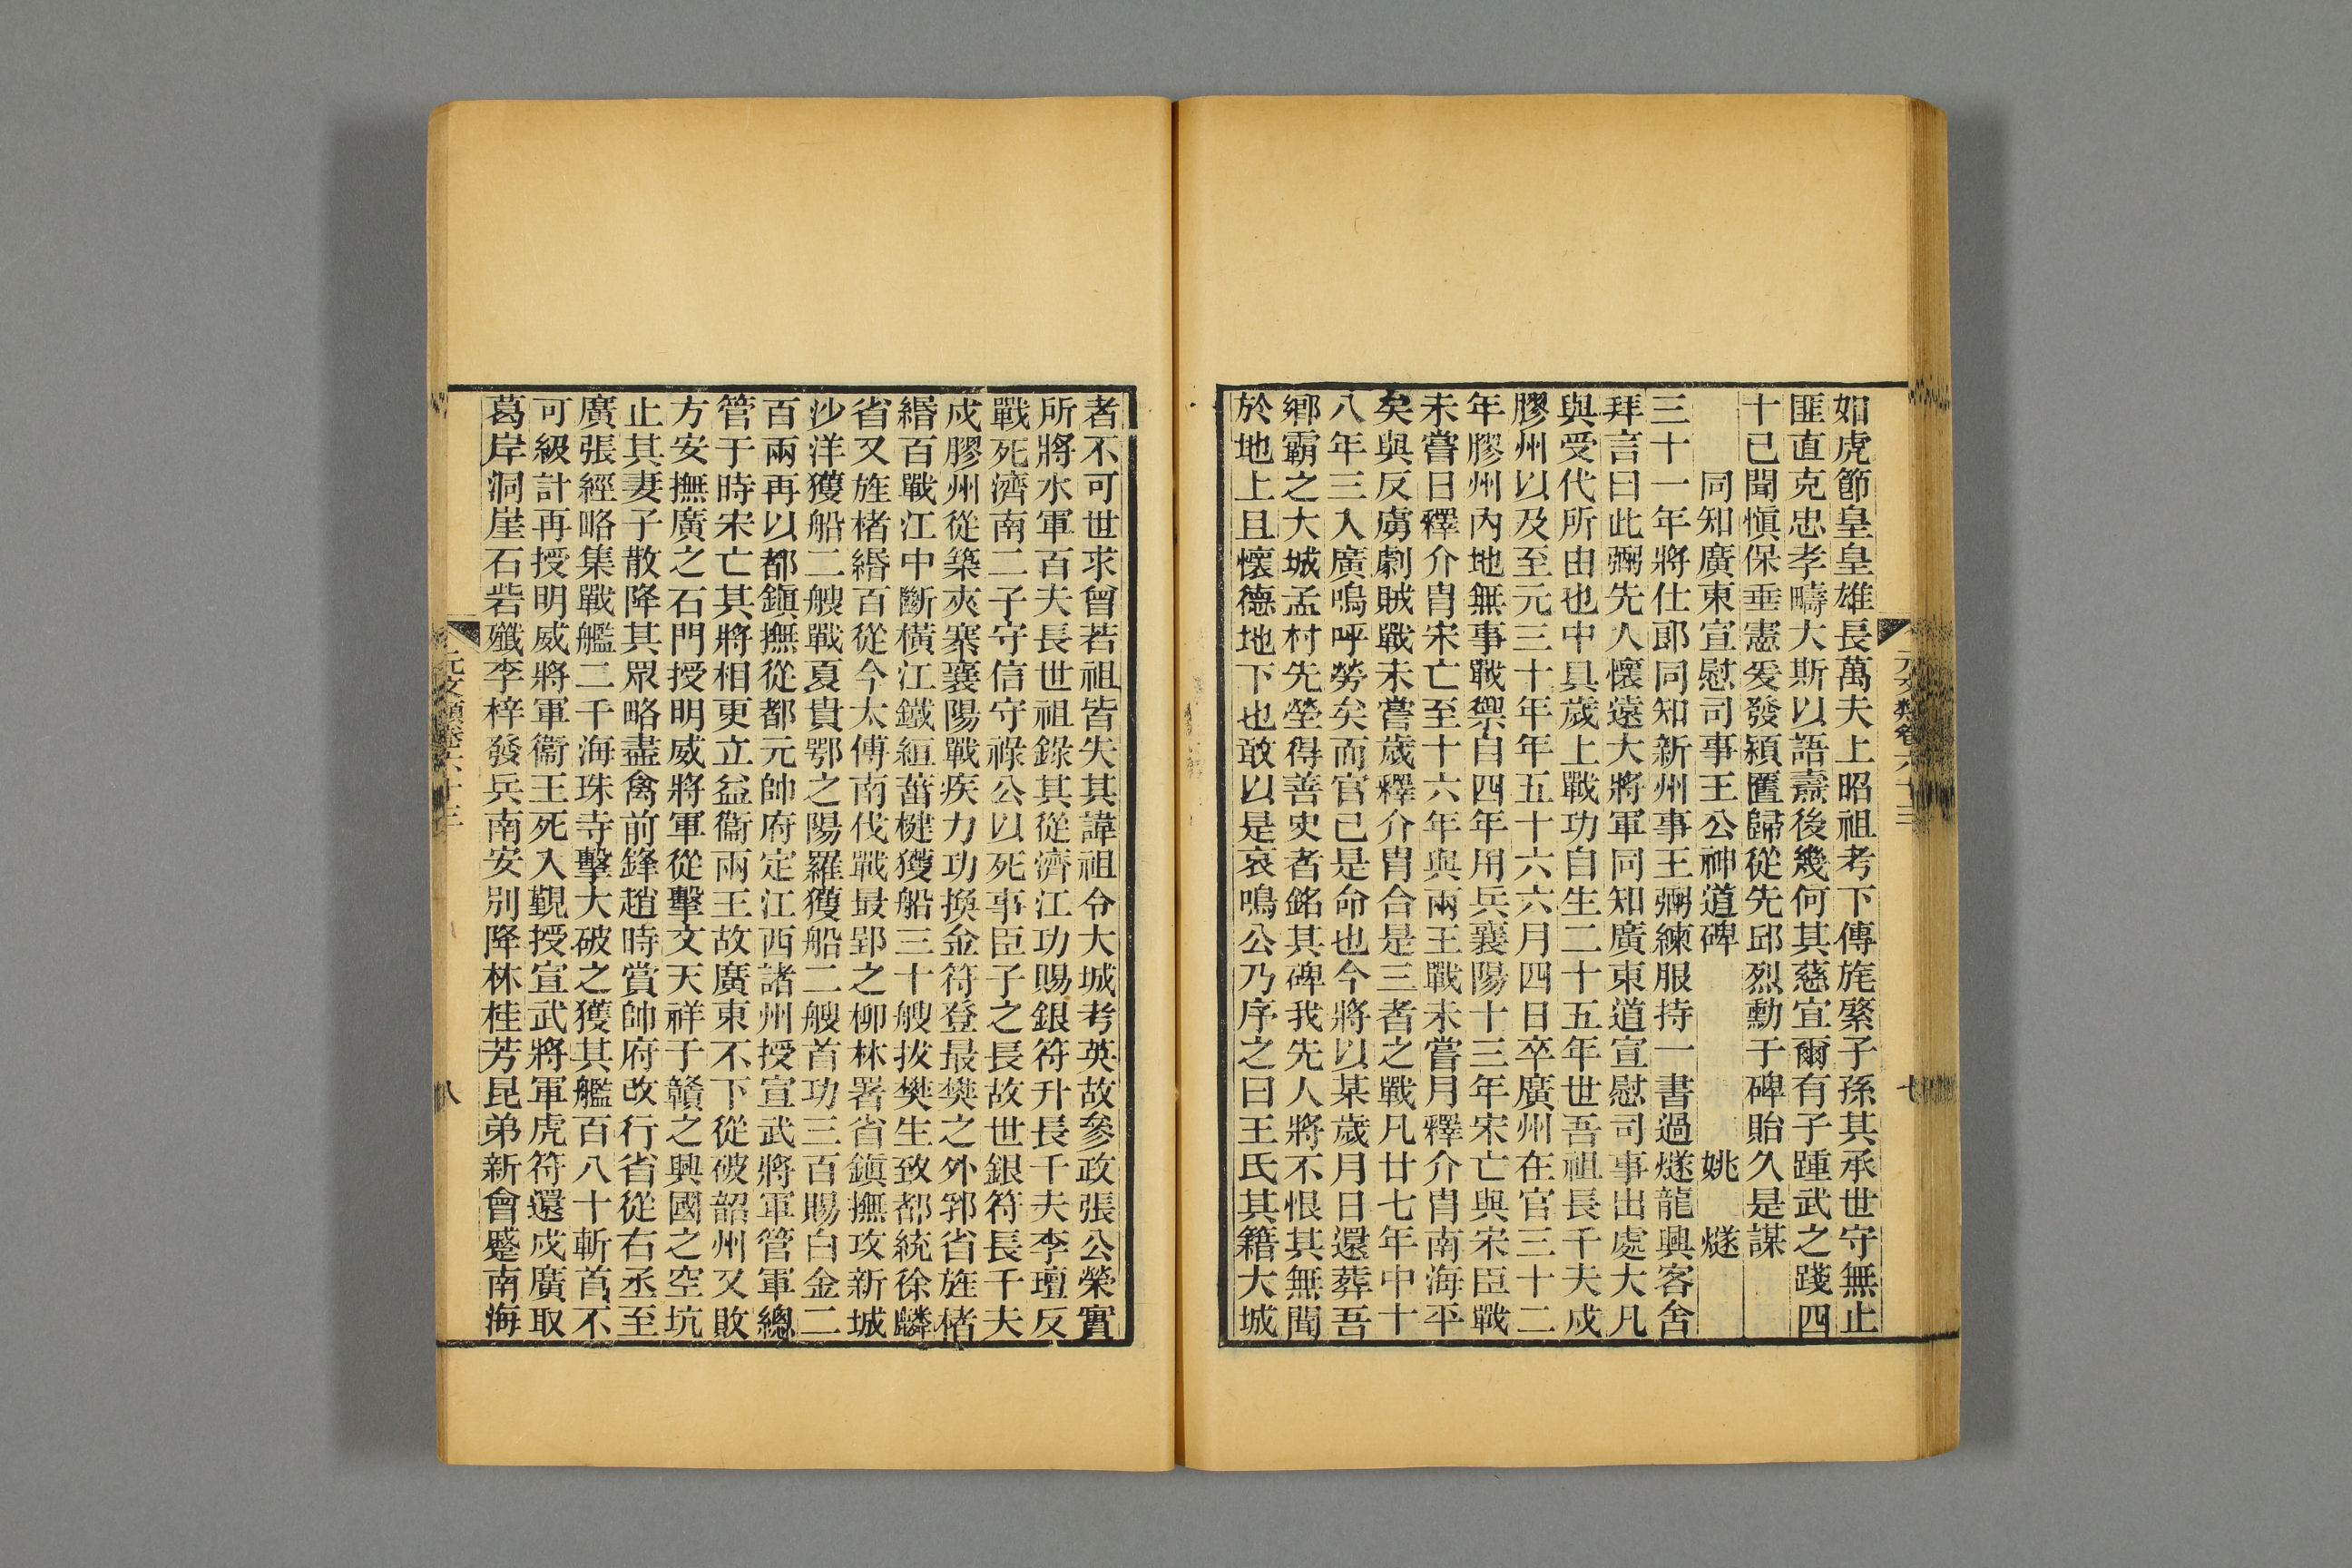 元文類卷六十三
七
如虎節皇皇雄長萬夫上昭祖考下傳旄綮子孫其承世守無止
匪直克忠孝疇大斯以語燾後幾何其慈宜爾有子踵武之踐四
十已聞愼保垂憲爰發潁匶歸從先邱烈勳于碑貽久是謀
同知廣東宣慰司事王公神道碑 姚 燧
三十一年將仕郎同知新州事王彌練服持一書過燧龍興客舍
拜言曰此彌先人懷遠大將軍同知廣東道宣慰司事出處大凡
與受代所由也中具歲上戰功自生二十五年世吾祖長千夫戍
膠州以及至元三十年年五十六六月四日卒廣州在官三十二
年膠州內地無事戰禦自四年用兵襄陽十三年宋亡與宋臣戰
未嘗日釋介胄宋亡至十六年與兩王戰未嘗月釋介胄南海平
矣與反虜劇賊戰未嘗歲釋介胄合是三者之戰凡廿七年中十
八年三入廣嗚呼勞矣而官已是命也今將以某歲月日還葬吾
鄉霸之大城孟村先塋得善史者銘其碑我先人將不恨其無聞
於地上且懷德地下也敢以是哀鳴公乃序之曰王氏其籍大城
者不可世求曾若祖皆失其諱祖令大城考英故參政張公榮實
所將水軍百夫長世祖錄其從濟江功賜銀符升長千夫李璮反
戰死濟南二子守信守祿公以死事臣子之長故世銀符長千夫
戍膠州從築夾寨襄陽戰疾力功換金符登最樊之外郛省旌楮
緡百戰江中斷橫江鐵絙葘楗獲船三十艘拔樊生致都統徐麟
省又旌楮緡百從今太傅南伐戰最郢之柳林署省鎭撫攻新城
沙洋獲船二艘戰夏貴鄂之陽羅獲船二艘首功三百賜白金二
百兩再以都鎭撫從都元帥府定江西諸州授宣武將軍管軍總
管于時宋亡其將相更立益衞兩王故廣東不下從破韶州又敗
方安撫廣之石門授明威將軍從擊文天祥于贛之興國之空坑
止其妻子散降其眾略盡禽前鋒趙時賞帥府改行省從右丞至
廣張經略集戰艦二千海珠寺擊大破之獲其艦百八十斬首不
可級計再授明威將軍衞王死入覲授宣武將軍虎符還戍廣取
葛岸洞崖石砦殲李梓發兵南安別降林桂芳昆弟新會蹙南海
元文類卷六十三
八